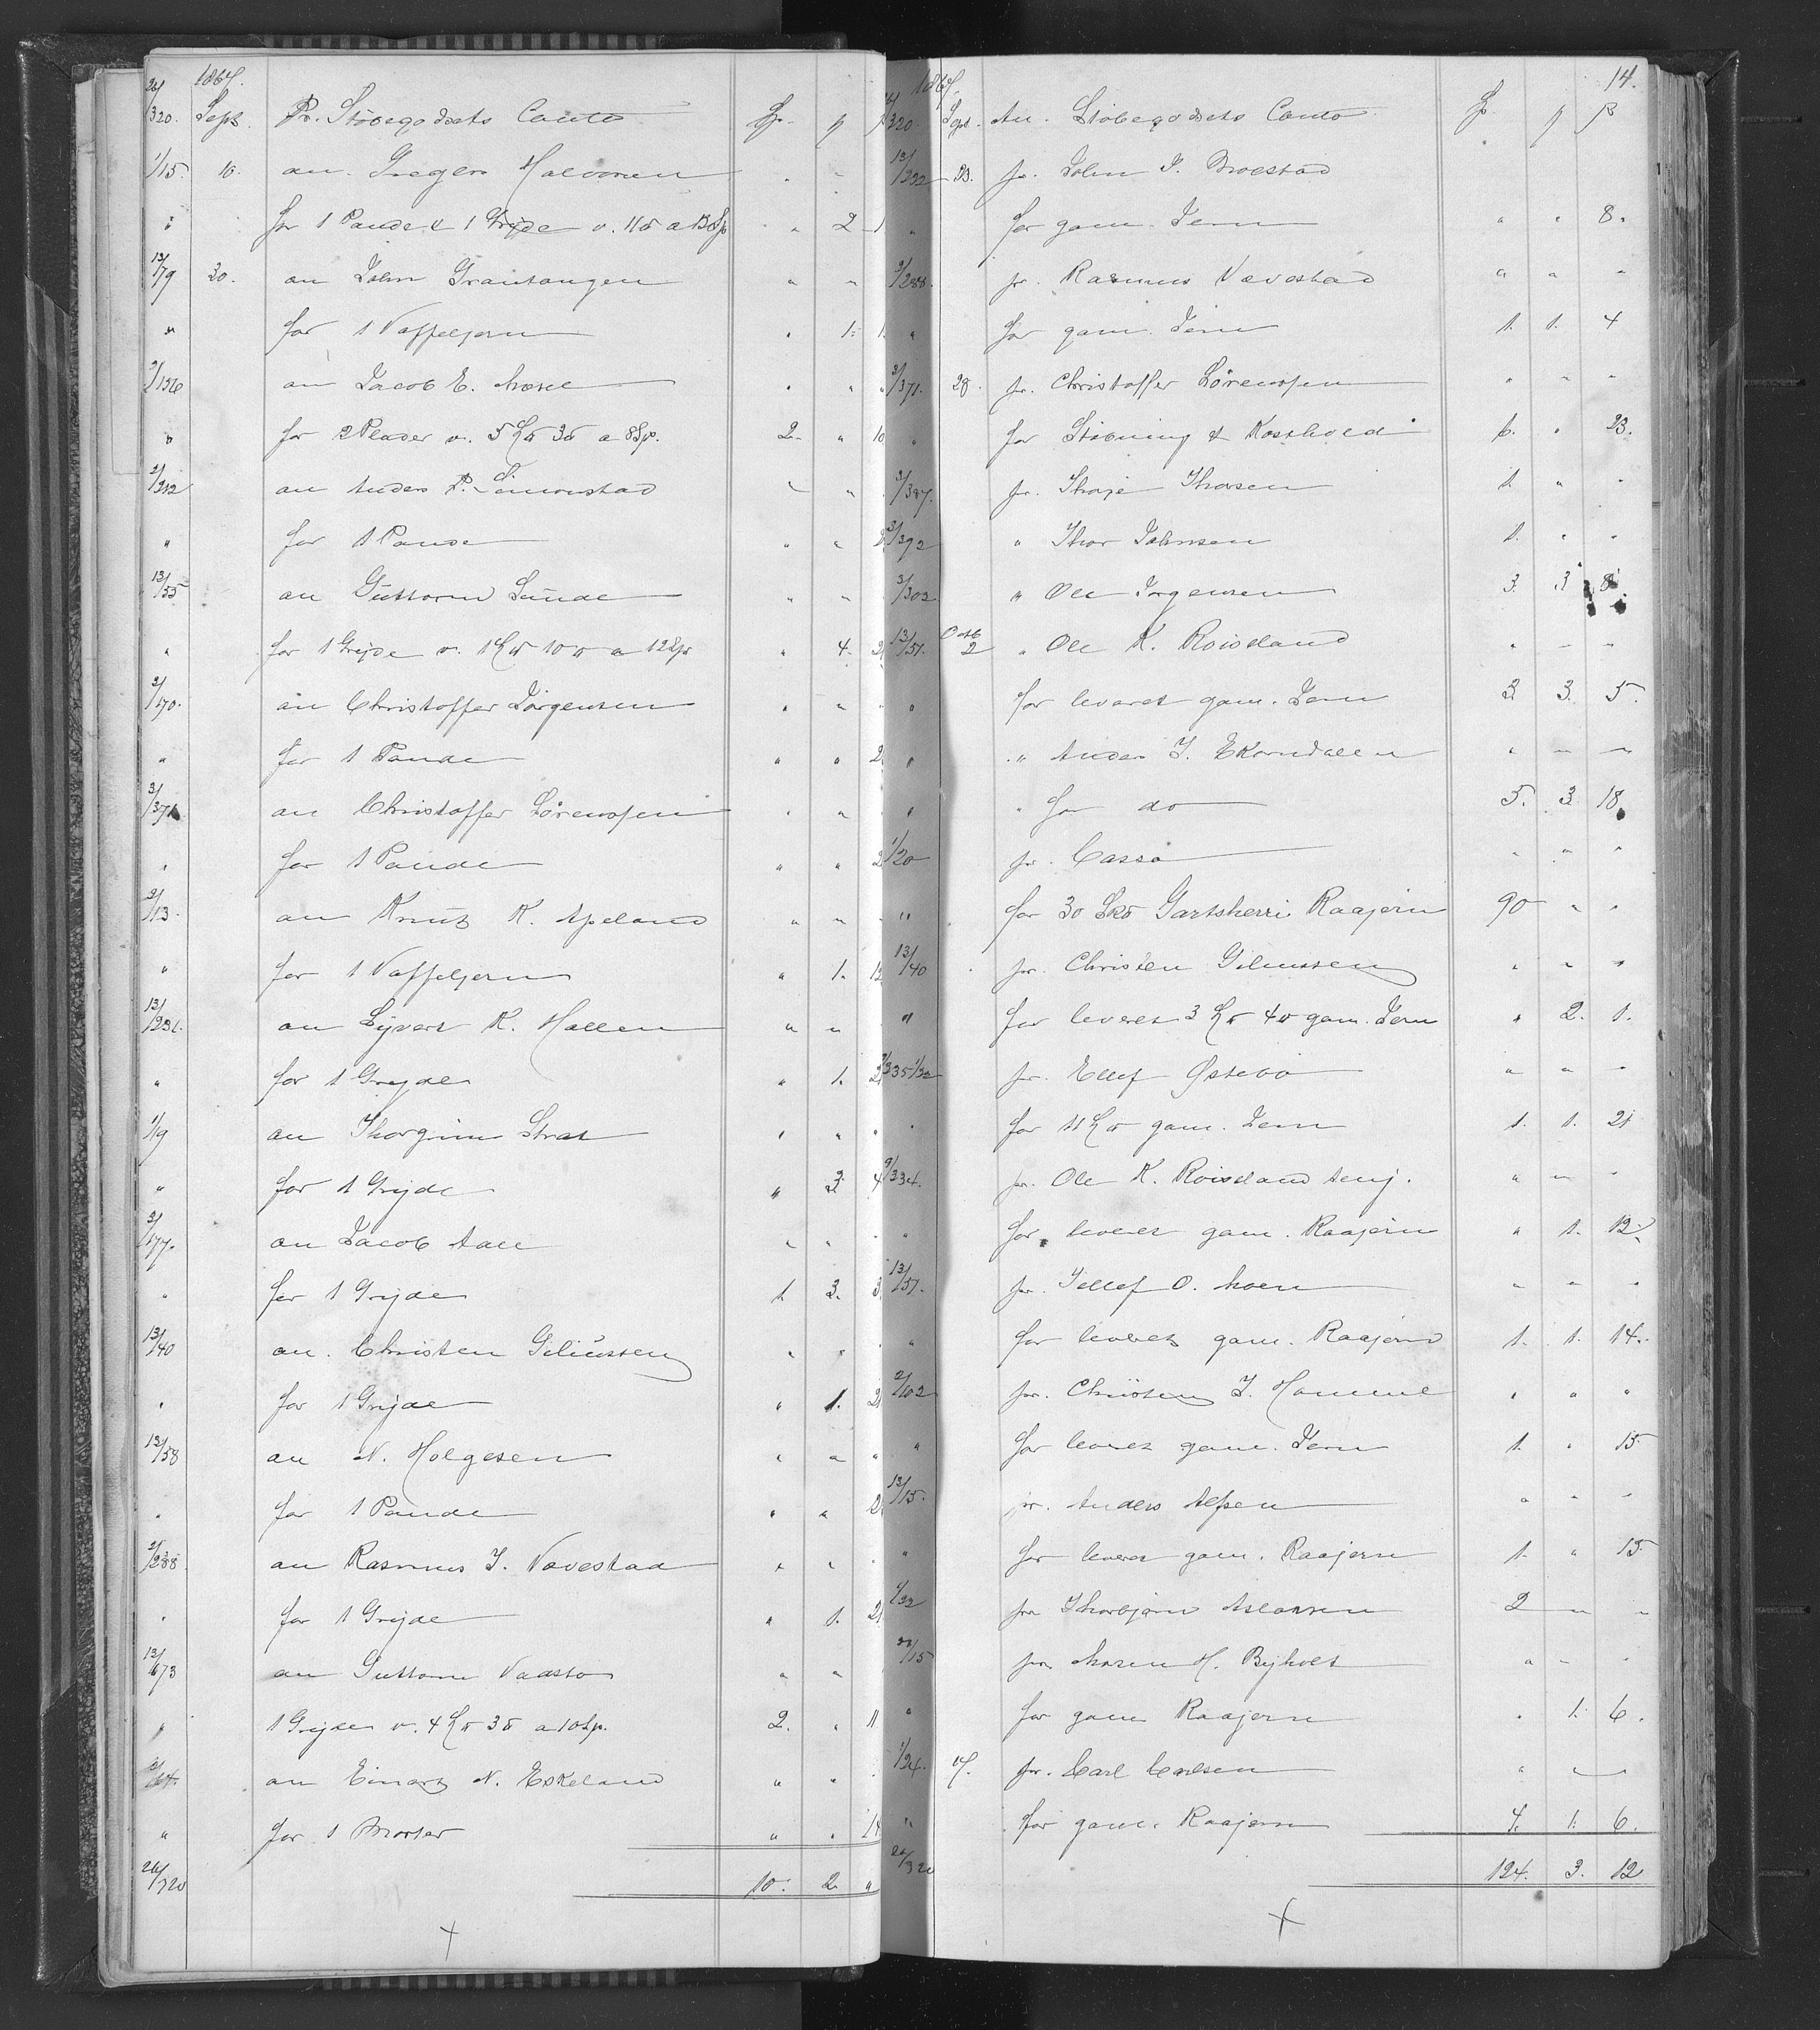 24/320. 1867. Sept. Pr. Støbegodsets Conto Sp. # β
1/15. 10. an Gregers Halvorsen " "
" for 1 Pande & 1 Gryde v. 11 ℔ a 13 Sp " 2 1
13/79 30. an John Grantangen " "
" for 1 Vaffeljern " 1. 1
2/136 an Jacob E. " "
" for 2 Plader v. 5 L℔ 3℔ a 8 Sp. 2. " 10
2/212 an Anders P. Simonstad " "
" for 1 Pande " "
13/55 an Guttorm Sunde " "
" for 1 Gryde v. 1 L℔ 10 ℔ a 12 Sp " 4. 2
2/170. an Christoffer Jørgensen " "
" for 1 Pande " " 2
3/371 an Christoffer Sørenssen " "
" for 1 Pande " " 2
2/13. an Knut K. Apeland " "
" for 1 Vaffeljern " 1. 12
13/231. an Syvert K. Hallen " "
" for 1 Gryde " 1. 2
1/9 an Thorgrim Strat " "
" for 1 Gryde " 3 4
2/177. an Jacob Aall " "
" for 1 Gryde 1. 3. 3
13/40 an Christen Giliussen " "
" for 1 Gryde " 1. 2
13/58 an N. Holgesen " "
" for 1 Pande " " 2
2/288 an Rasmus J. Vævestad " "
" for 1 Gryde " 1. 2
13/673 an Guttorm " "
" 1 Gryde v. 4 L℔ 3℔ a 10 Sp. 2. " 11
an Einart N. Eskeland " "
" for 1 Morter " " 14
24/320 10. 2 "
14.
24/320. 1867. Sept. An Støbegodsets Conto Sp. # β
13/232 23. pr. John J. Moestad
" for gam. Jern " " 8.
2/288. pr. Rasmus Vævestad " " "
" for gam. Jern 1. 1. 4
3/371. 28. pr. Christoffer Sørenssen " " "
" for Støbning & Kosthold 6. " 23.
3/387. pr. Thorsen 1. " "
3/392 " Thor Johnsen 1. " "
3/302 " Ole Jørgensen 3. 3 8
13/51. Octb 2 " Ole K. Roisland " " "
" for leveret gam. Jern 3. 3. 5.
" " Anders J. Ekorndalen " " "
" " for do 5. 3 18
1/20 pr. Cassa " " "
" for 30 Sk℔ Gartsherri Raajern 90 " "
13/40 pr. Christen Giliussen " " "
" for leveret 3 L℔ 4℔ gam. Jern " 2. 1.
2/335 1/32 pr. Ellef Østebø " " "
" for 11 L℔ gam. Jern 1. 1. 21
2/334. pr. Ole K. Roisland " " "
" for leveret gam. Raajern " 1. 12
13/51. pr. Tellef O. Moen " " "
" for leveret gam. Raajern 1. 1. 14.
2/102 pr. Christen J. Hommel " " "
" for leveret gam. Jern 1. " 15
13/15. pr. Anders Alfsen " " "
" for leveret gam. Raajern 1. " 15
1/32 pr. Thorbjørn Aslaksen 2 " "
pr. Maren H. Byholt " " "
" for gam Raajern " 1. 6.
1/24. 17. pr. Carl Carlsen " "
" for gam. Raajern 4. 1. 6.
24/320 124. 3. 12